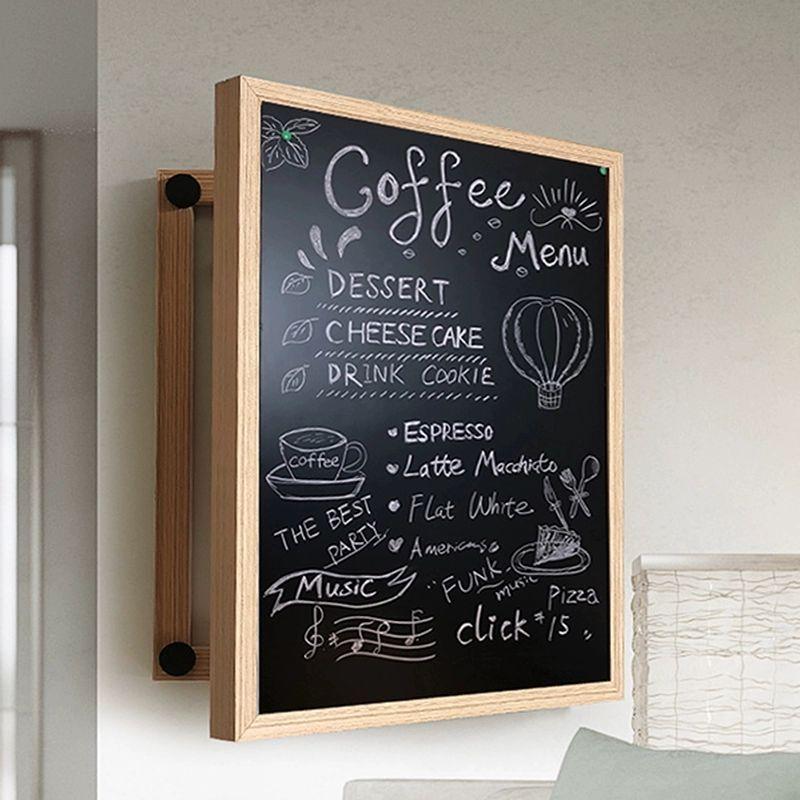 Coffee
Menu
DESSERT
CHEESE CAKE
DRINK COOKIE
coffee
ESPRESSO
Latte Macchiato
Flat White
Americano
THE BEST
PARTY
Music
"FUNK.
music
Pizza
click #15